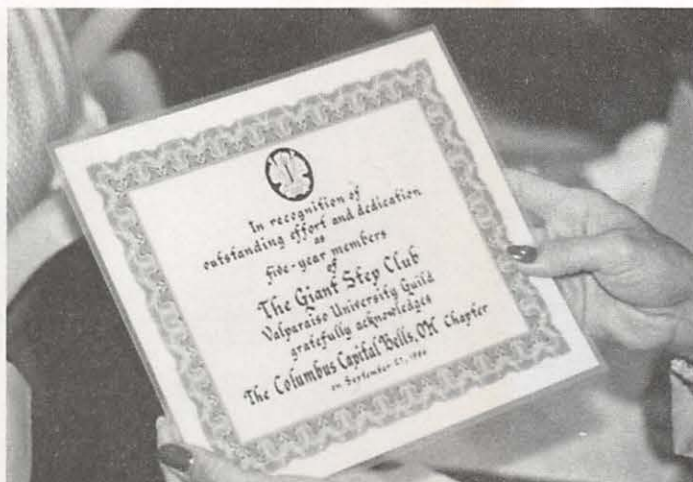 In recognition of
outstanding effort and dedication
as
five-year members
of
The Giant Step Club
Valparaiso University Guild
gratefully acknowledges
The Columbus Capital Bells, OH Chapter
on September 27, 1986